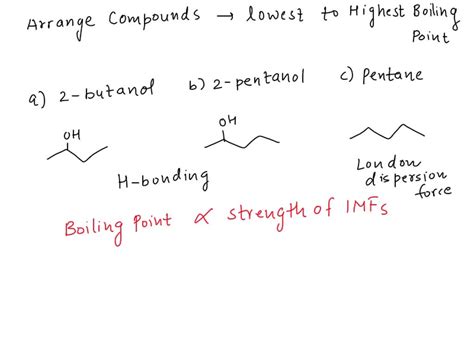 Arrange Compounds → lowest to Highest Boiling
Point
a) 2-butanol b) 2-pentanol c) Pentane
OH OH
H-bonding
London
dispersion
force
Boiling Point ∝ strength of IMFs